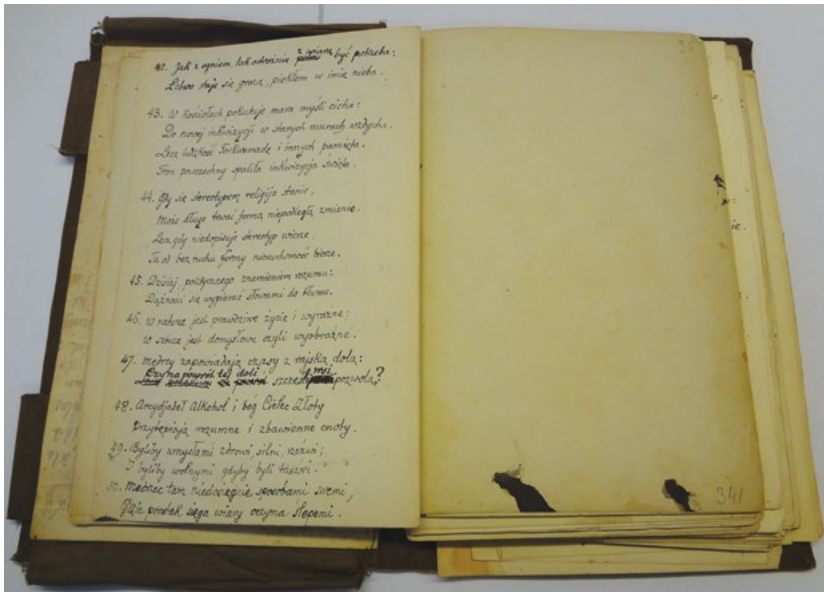 42. Jak z ogniem, tak ostrożnie z wiarą być potrzeba:
Łatwo staje się grozą, „piekłem w imię nieba.
43. W kościołach pokutuje mara myśli cicha:
Do nowej inkwizycji w starych murach wzdycha.
Lecz ludzkość Torkwemadę i innych pamięta.
Tron powszechny spaliła inkwizycja święta.
44. Gdy się stereotypem religija stanie,
Może długo trwać formą, niepodległą zmianie.
Lecz gdy niedopisuje stereotyp wierze,
Ta oś bez ruchu formy nieruchomość bierze.
45. Dzisiaj, politycznego znamieniem rozumu:
Dążności się wypierać słowami do tłumu.
46. W naturze jest prawdziwe życie i wyraźne;
w sztuce jest domysłowe czyli wyobraźne.
47. Mędrcy zapowiadają czasy z rajską dolą:
Czy na powrót tej doli pozwolą?
48. Arcydjabeł Alkohol i bóg Cielec Złoty
Przytępiają rozumne i zbawienne cnoty.
49. Byliby umysłami zdrowi, silni, rzeźwi;
I byliby wolnymi, gdyby byli trzeźwi.
50. Mędrzec tam niedosięgnie sposobami swemi,
Gdzie prostak sięga wiary oczyma ślepemi.
35
341